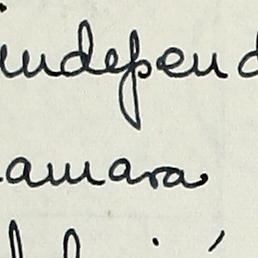 independ
amara